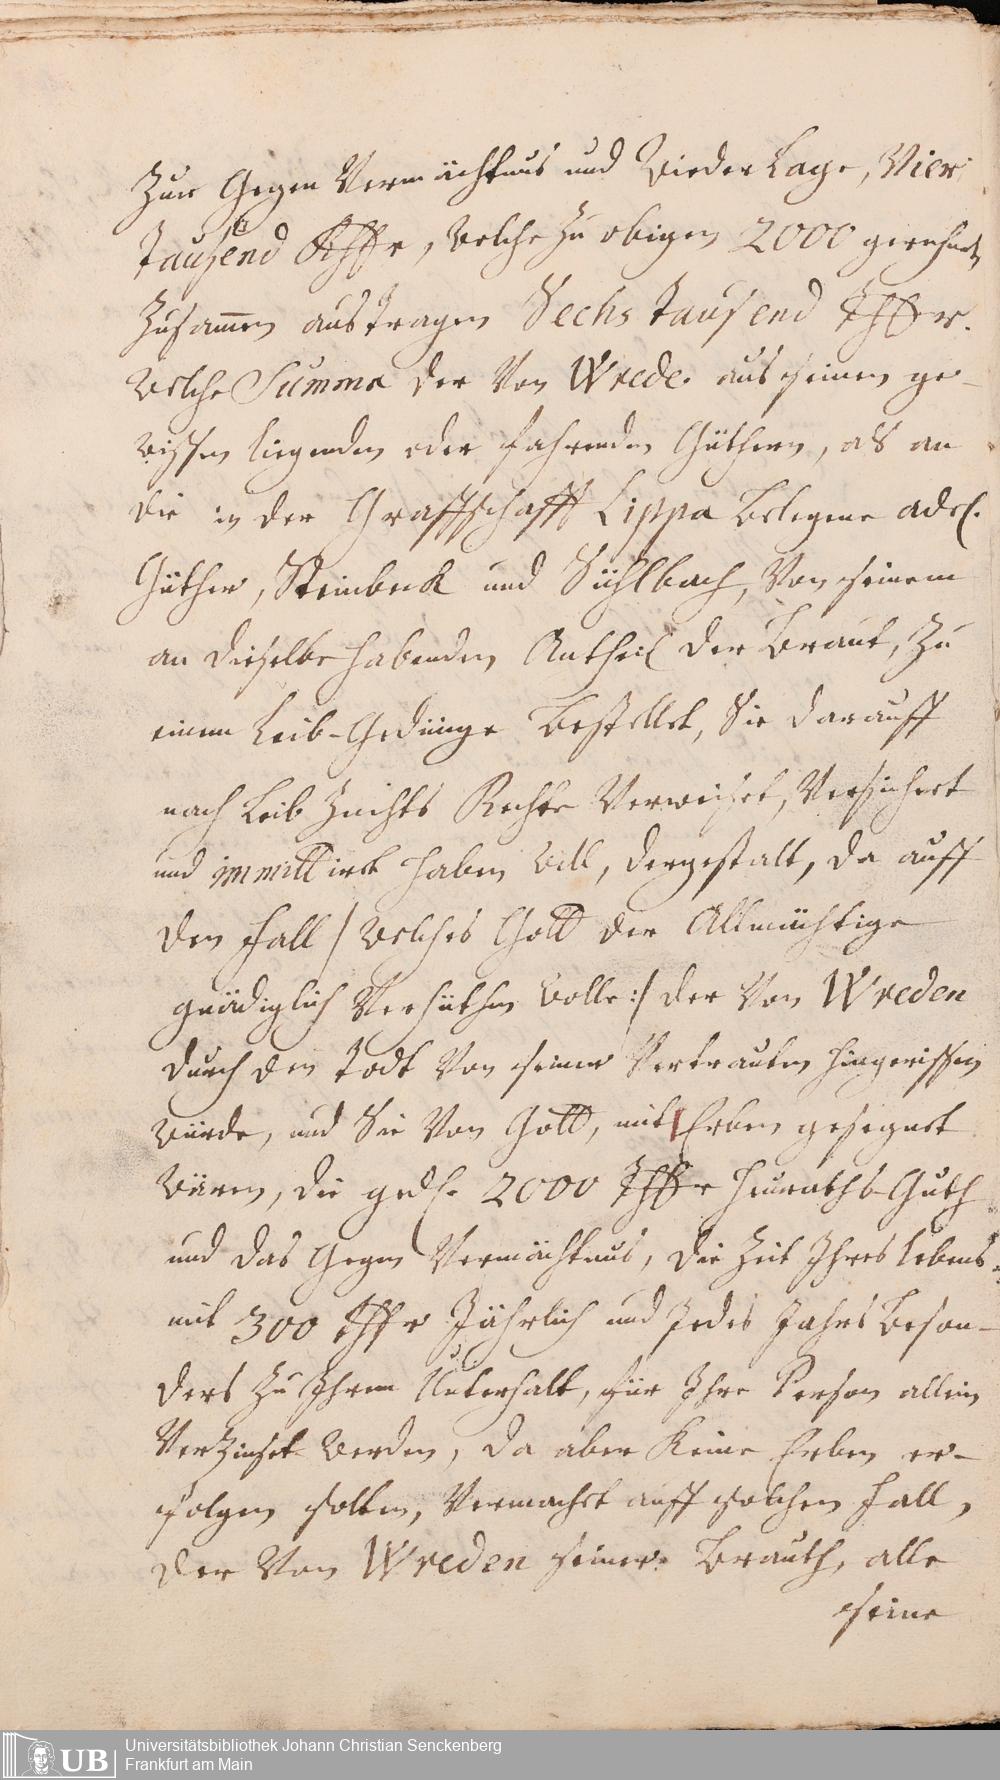 Zur Gegen Vermächtnus und Wieder Lage, Vier
Tausend Rthlr, welche zu obigen 2000 gerechnet
Zusam̄en austragen Sechs Tausend Thlr.
welche Summa der Von Wrede aus seinen ge-
wissen liegenden oder fahrenden Güthern, als an
die in der Graffschafft Lippa belegene adel.
Güther, Steinbeck und Sühlbach, Von seinem
an dieselbe habenden Antheil der Braut, Zu
einem Leib-Gedünge bestellet, Sie darauff
nach Leib Zuchts Rechte Verweiset, Versichert
und immittiret haben will, dergestalt, da auff
den Fall /welches Gott der Allmächtige
gnädiglich Verhüthen wolle:/ der Von Wreden
durch den Todt Von seiner Vertrauten hingerissen
würde, und Sie Von Gott, mit Erben gesegnet
wären, die gedl. 2000 Thlr Heuraths-Guth
und das Gegen Vermächtnus, die Zeit Ihres Lebens
mit 300 Thlr Jährlich und Jedes Jahrs beson-
ders zu Ihrem Unterhalt, für Ihre Person allein
Verzinset werden, da aber Keine Erben er-
folgen solten, Vermachet auff solchen Fall,
der Von Wreden seiner Brauth, alle
seine
UB
Universitätsbibliothek Johann Christian Senckenberg
Frankfurt am Main